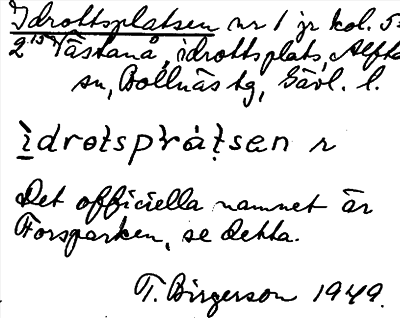 Idrottsplatsen nr 1 jr kol. 5:
2 15 Västanå, idrottsplats, Alfta
sn, Bollnäs tg, Gävl. l.
idrotsplatsen r
Det officiella namnet är
Forsparken, se detta.
T. Birgerson 1949.